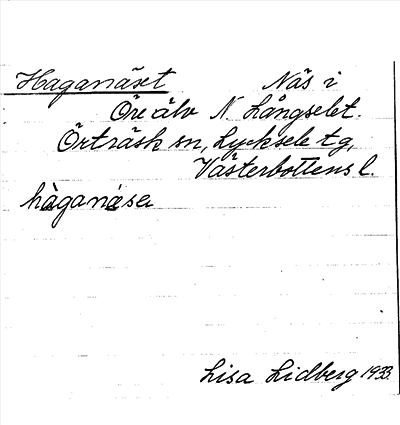 Haganäset Näs i
Öre älv N. Långselet.
Örträsk sn, Lycksele tg,
Västerbottens l.
hàganǽse
Lisa Lidberg 1933.